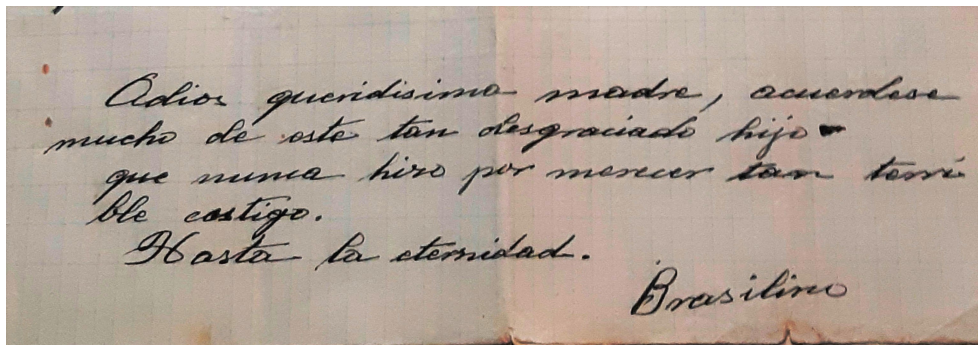 Adios queridisima madre, acuerdese
mucho de este tan desgraciado hijo
que nunca hizo por merecer tan terri
ble castigo.
Hasta la eternidad.
Brasilino